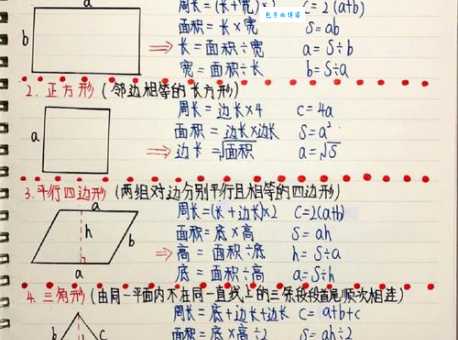 a
周长=(长+宽)×2 C=2(a+b)
b
面积=长×宽 S=ab
⇒长=面积÷宽 a=S÷b
宽=面积÷长 b=S÷a
2.正方形(邻边相等的长方形)
周长=边长×4 C=4a
a
面积=边长×边长 S=a²
⇒边长=√面积 a=√S
3.平行四边形(两组对边分别平行且相等的四边形)
a
周长=(长+边长)×2 C=2(a+b)
h b
面积=底×高 S=ah
⇒高=面积÷底 h=S÷a
a
底=面积÷高 a=S÷h
4.三角形(由同一平面内不在同一直线上的三条线段首尾顺次相连)
周长=底+边长+边长 C=a+b+c
b c
面积=底×高÷2 S=ah÷2